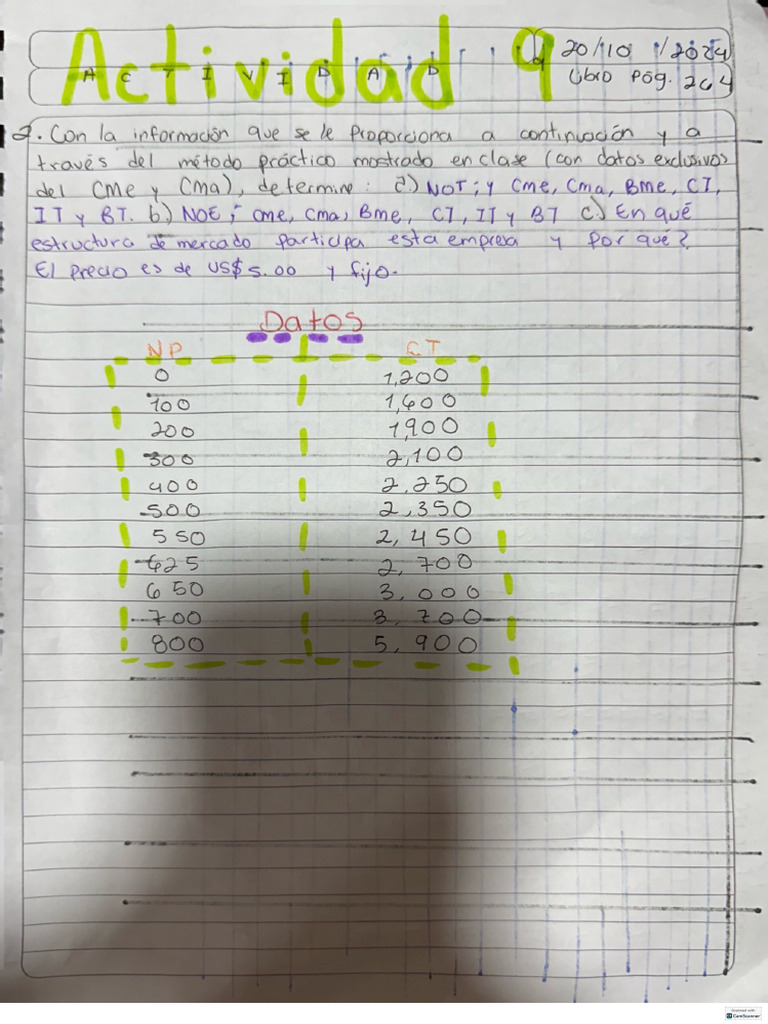 Actividad 9
A C T I V I D A D
20/10/2024
Libro Pág. 264
2. Con la información que se le Proporciona a continuación y a
través del método práctico mostrado en clase (con datos exclusivos
del CMe y CMa), determine: a) NOT; y CMe, CMa, BMe, CT,
IT y BT. b) NOE; CMe, CMa, BMe, CT, IT y BT c) En qué
estructura de mercado participa esta empresa y por qué?
El precio es de US$ 5.00 y fijo.
Datos
NP CT
0 1,200
100 1,600
200 1,900
300 2,100
400 2,250
500 2,350
550 2,450
625 2,700
650 3,000
700 3,700
800 5,900
Scanned with
CamScanner